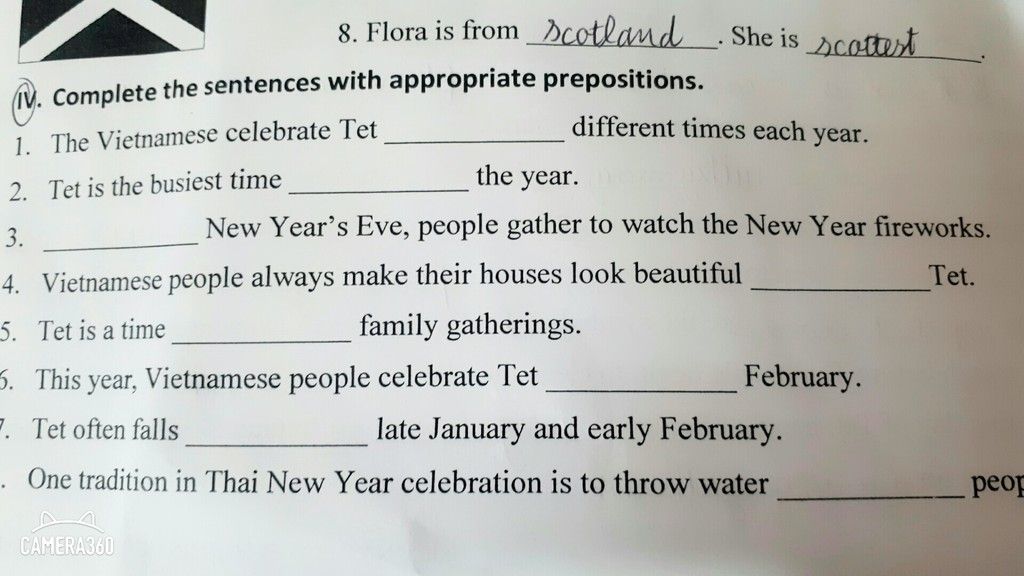 8. Flora is from scotland. She is scottest.
IV. Complete the sentences with appropriate prepositions.
1. The Vietnamese celebrate Tet ____________ different times each year.
2. Tet is the busiest time ____________ the year.
3. ____________ New Year's Eve, people gather to watch the New Year fireworks.
4. Vietnamese people always make their houses look beautiful ____________ Tet.
5. Tet is a time ____________ family gatherings.
6. This year, Vietnamese people celebrate Tet ____________ February.
7. Tet often falls ____________ late January and early February.
. One tradition in Thai New Year celebration is to throw water ____________
CAMERA360